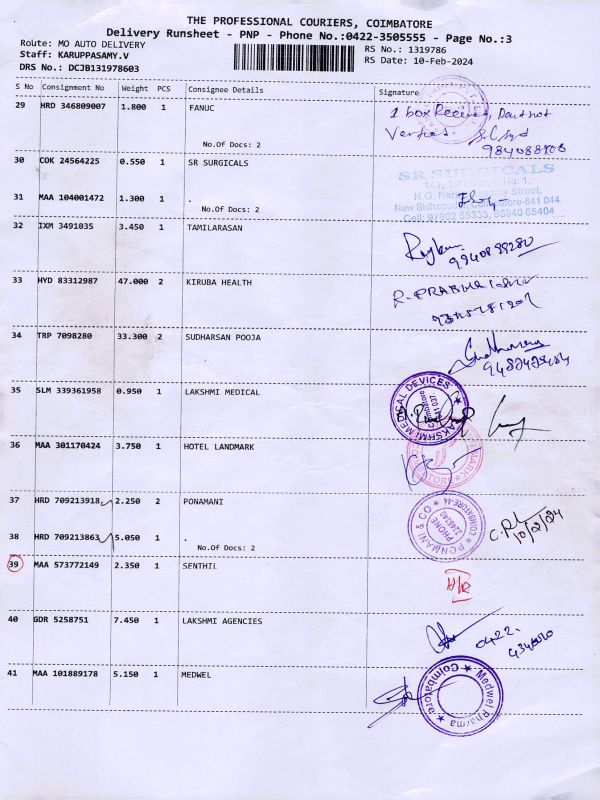 THE PROFESSIONAL COURIERS, COIMBATORE
Delivery Runsheet - PNP - Phone No.:0422-3505555 - Page No.:3
Route: MO AUTO DELIVERY
Staff: KARUPPASAMY.V
DRS No.: DCJB131978603
RS No.: 1319786
RS Date: 10-Feb-2024
S No Consignment No Weight PCS Consignee Details Signature
29 HRD 346809007 1.800 1 FANUC
No.Of Docs: 2
1 box
30 COK 24564225 0.550 1 SR SURGICALS
SR SURGICALS
31 MAA 104001472 1.300 1 .
No.Of Docs: 2
32 IXM 3491035 3.450 1 TAMILARASAN
33 HYD 83312987 47.000 2 KIRUBA HEALTH
34 TRP 7098280 33.300 2 SUDHARSAN POOJA
35 SLM 339361958 0.950 1 LAKSHMI MEDICAL
LAKSHMI MEDICAL DEVICES
36 MAA 301170424 3.750 1 HOTEL LANDMARK
37 HRD 709213918 2.250 2 PONAMANI
PONMANI & CO
COIMBATORE-44
PHONE
38 HRD 709213863 5.050 1 .
No.Of Docs: 2
10/2/24
39 MAA 573772149 2.350 1 SENTHIL
40 GDR 5258751 7.450 1 LAKSHMI AGENCIES
0422-
41 MAA 101889178 5.150 1 MEDWEL
Medwel Pharma
Coimbatore